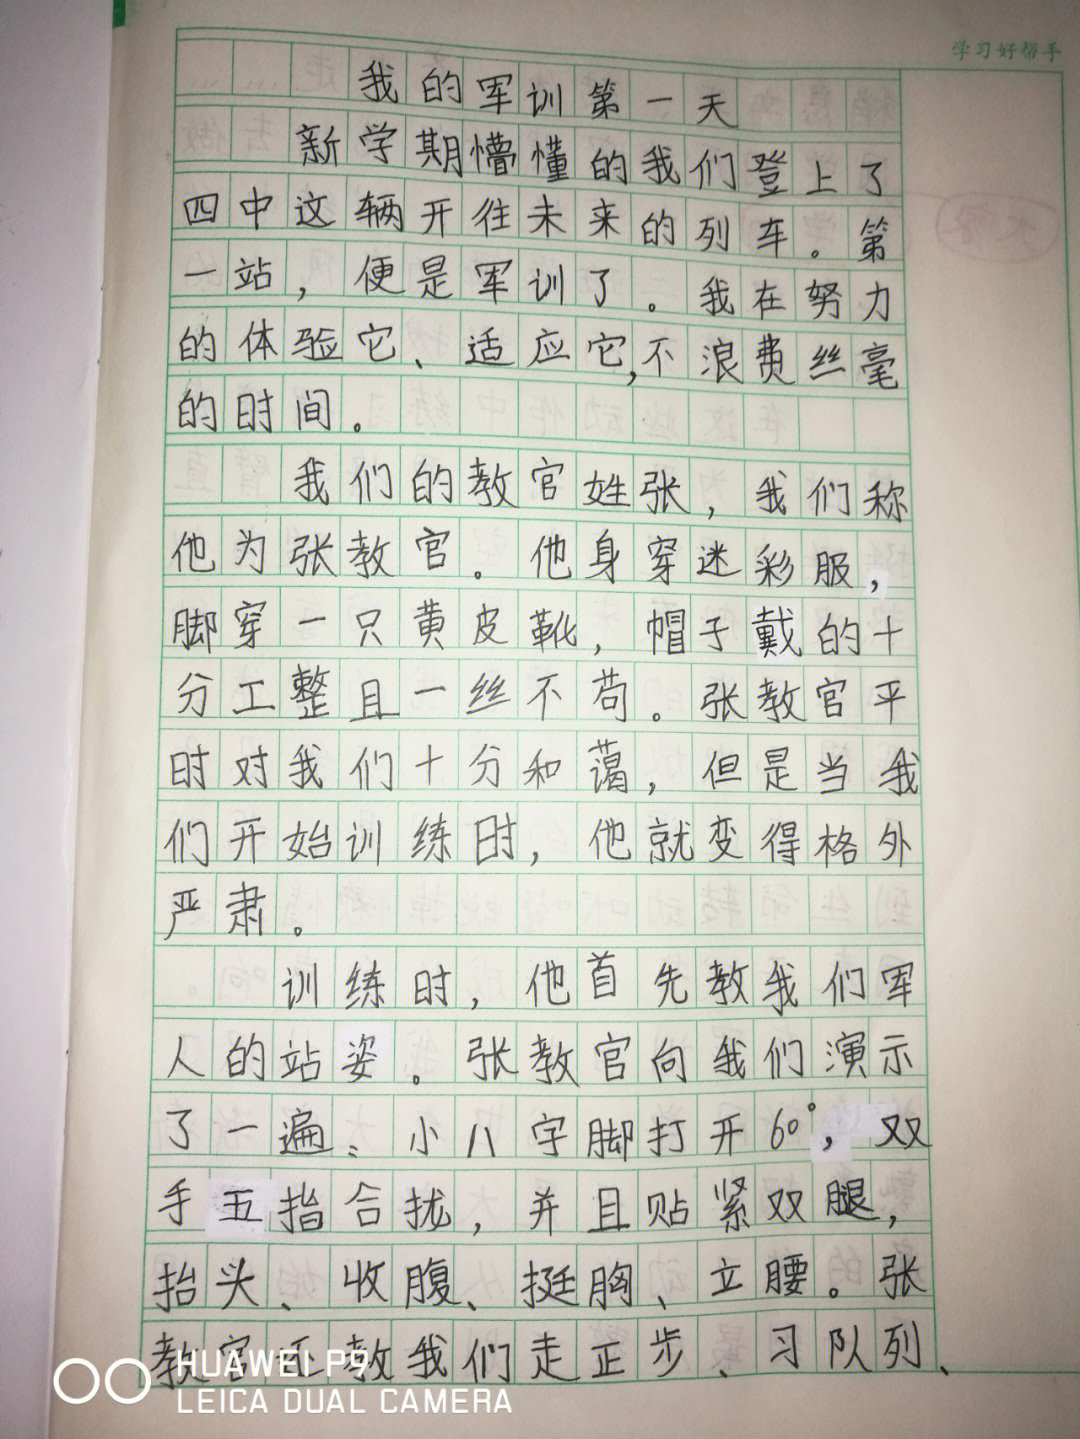 学习好帮手
我的军训第一天
新学期懵懂的我们登上了
四中这辆开往未来的列车。第
一站，便是军训了。我在努力
的体验它、适应它,不浪费丝毫
的时间。
我们的教官姓张，我们称
他为张教官。他身穿迷彩服，
脚穿一只黄皮靴，帽子戴的十
分工整且一丝不苟。张教官平
时对我们十分和蔼，但是当我
们开始训练时，他就变得格外
严肃。
训练时，他首先教我们军
人的站姿。张教官向我们演示
了一遍：小八字脚打开60°，双
手五指合拢，并且贴紧双腿，
抬头、收腹、挺胸、立腰。张
教官还教我们走正步、习队列、
HUAWEI P9
LEICA DUAL CAMERA